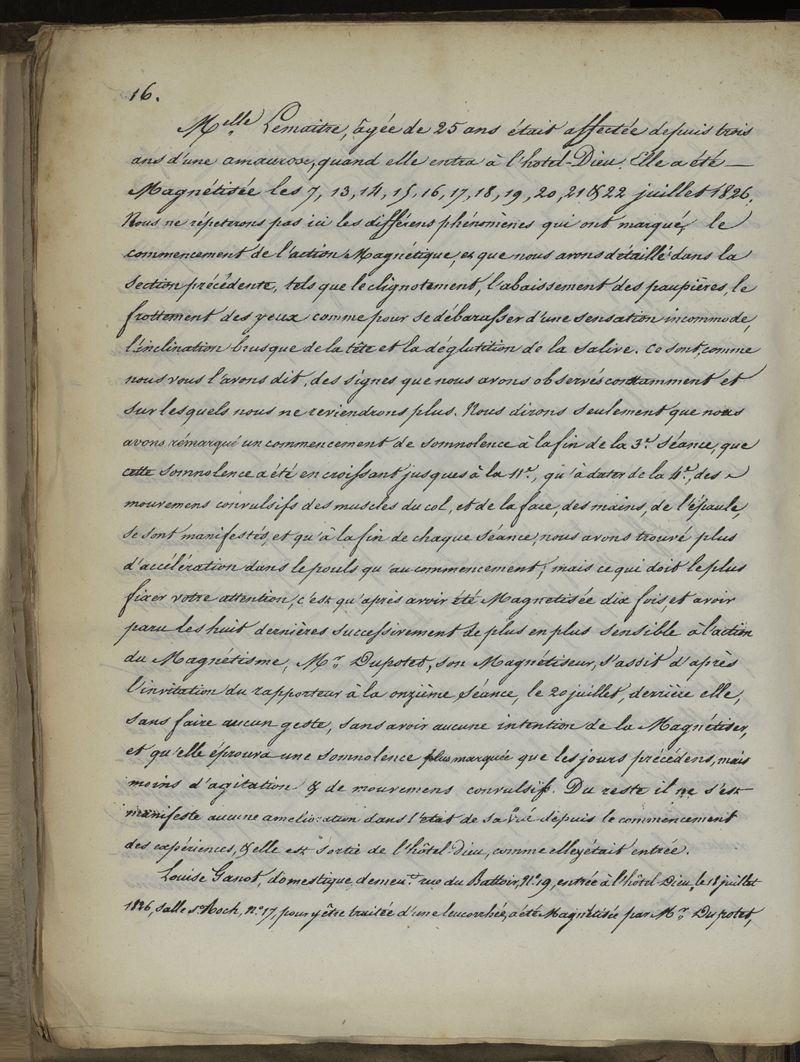 16.
Melle Lemaitre, âgée de 25 ans était affectée depuis trois
ans d'une amaurose, quand elle entra à l'hotel-Dieu. Elle a été —
Magnétisée les 7, 13, 14, 15, 16, 17, 18, 19, 20, 21 & 22 juillet 1826.
Nous ne répeterons pas ici les différens phénomènes qui ont marqué, le
commencement de l'action Magnétique, et que nous avons détaillé dans la
section précédente, tels que le clignotement, l'abaissement des paupières, le
frottement des yeux comme pour se débarasser d'une sensation incommode,
l'inclination brusque de la tête et la déglutition de la salive. Ce sont, comme
nous vous l'avons dit, des signes que nous avons observés constamment et
sur lesquels nous ne reviendrons plus. Nous dirons seulement que nous
avons rémarqué un commencement de somnolence à la fin de la 3e. Séance, que
cette somnolence a été en croissant jusques à la 11e., qu'à dater de la 4e., des
mouvemens convulsifs des muscles du col, et de la face, des mains, de l'épaule,
se sont manifestés, et qu'à la fin de chaque Séance, nous avons trouvé plus
d'accélération dans le pouls qu'au commencement; mais ce qui doit le plus
fixer votre attention, c'est qu'après avoir été Magnetisée dix fois, et avoir
paru les huit dernières successivement de plus en plus sensible à l'action
du Magnétisme, Mr. Dupotet, son Magnétiseur, s'assit d'après
l'invitation du rapporteur à la onzième Séance, le 20 juillet, derrière elle,
sans faire aucun geste, sans avoir aucune intention de la Magnétiser,
et qu'elle éprouva une somnolence plus marquée que les jours précédens, mais
moins d'agitation & de mouvemens convulsifs. Du reste il ne s'est
manifeste aucune amelioration dans l'etat de sa vue depuis le commencement
des expériences, & elle est sortie de l'hôtel-Dieu, comme elle y était entrée.
Louise Ganot, domestique, demeut. rue du Battoir, No. 19, entrée à l'hôtel-Dieu, le 18 juillet
1826, Salle St. Roch, No. 17, pour y être traitée d'une leucorrhée, a été Magnétisée par Mr. Dupotet,